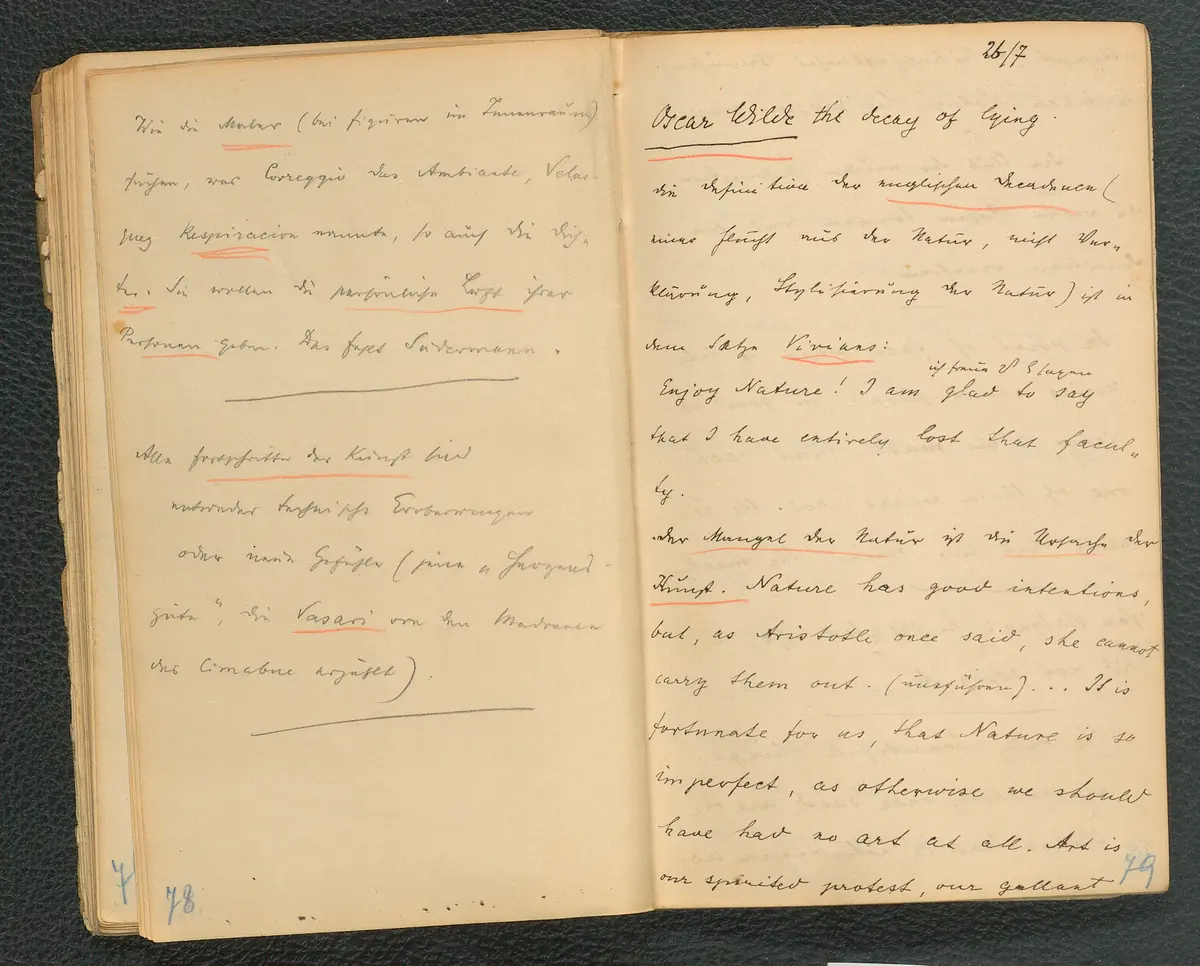 Wie die Maler (bei Figuren im Innenraum)
suchen, was Correggio das Ambiente, Velas-
quez Respiracion nannte, so auch die Dich-
ter. Sie wollen die persönliche Luft ihrer
Personen geben. Das fehlt Sudermann.
Alle Fortschritte der Kunst sind
entweder technische Eroberungen
oder neue Gefühle (jene „Herzens-
güte“, die Vasari von den Madonnen
des Cimabue erzählt).
78
7
26/7
Oscar Wilde the decay of lying.
die Definition der englischen Decadence (
einer Flucht aus der Natur, nicht Ver-
klärung, Stylisierung der Natur) ist in
dem Satze Vivians:
ich freue
Enjoy Nature! I am glad to say
that I have entirely lost that facul-
ty.
der Mangel der Natur ist die Ursache der
Kunst. Nature has good intentions,
but, as Aristotle once said, she cannot
carry them out. (ausführen)... It is
fortunate for us, that Nature is so
imperfect, as otherwise we should
have had no art at all. Art is
our spirited protest, our gallant
79